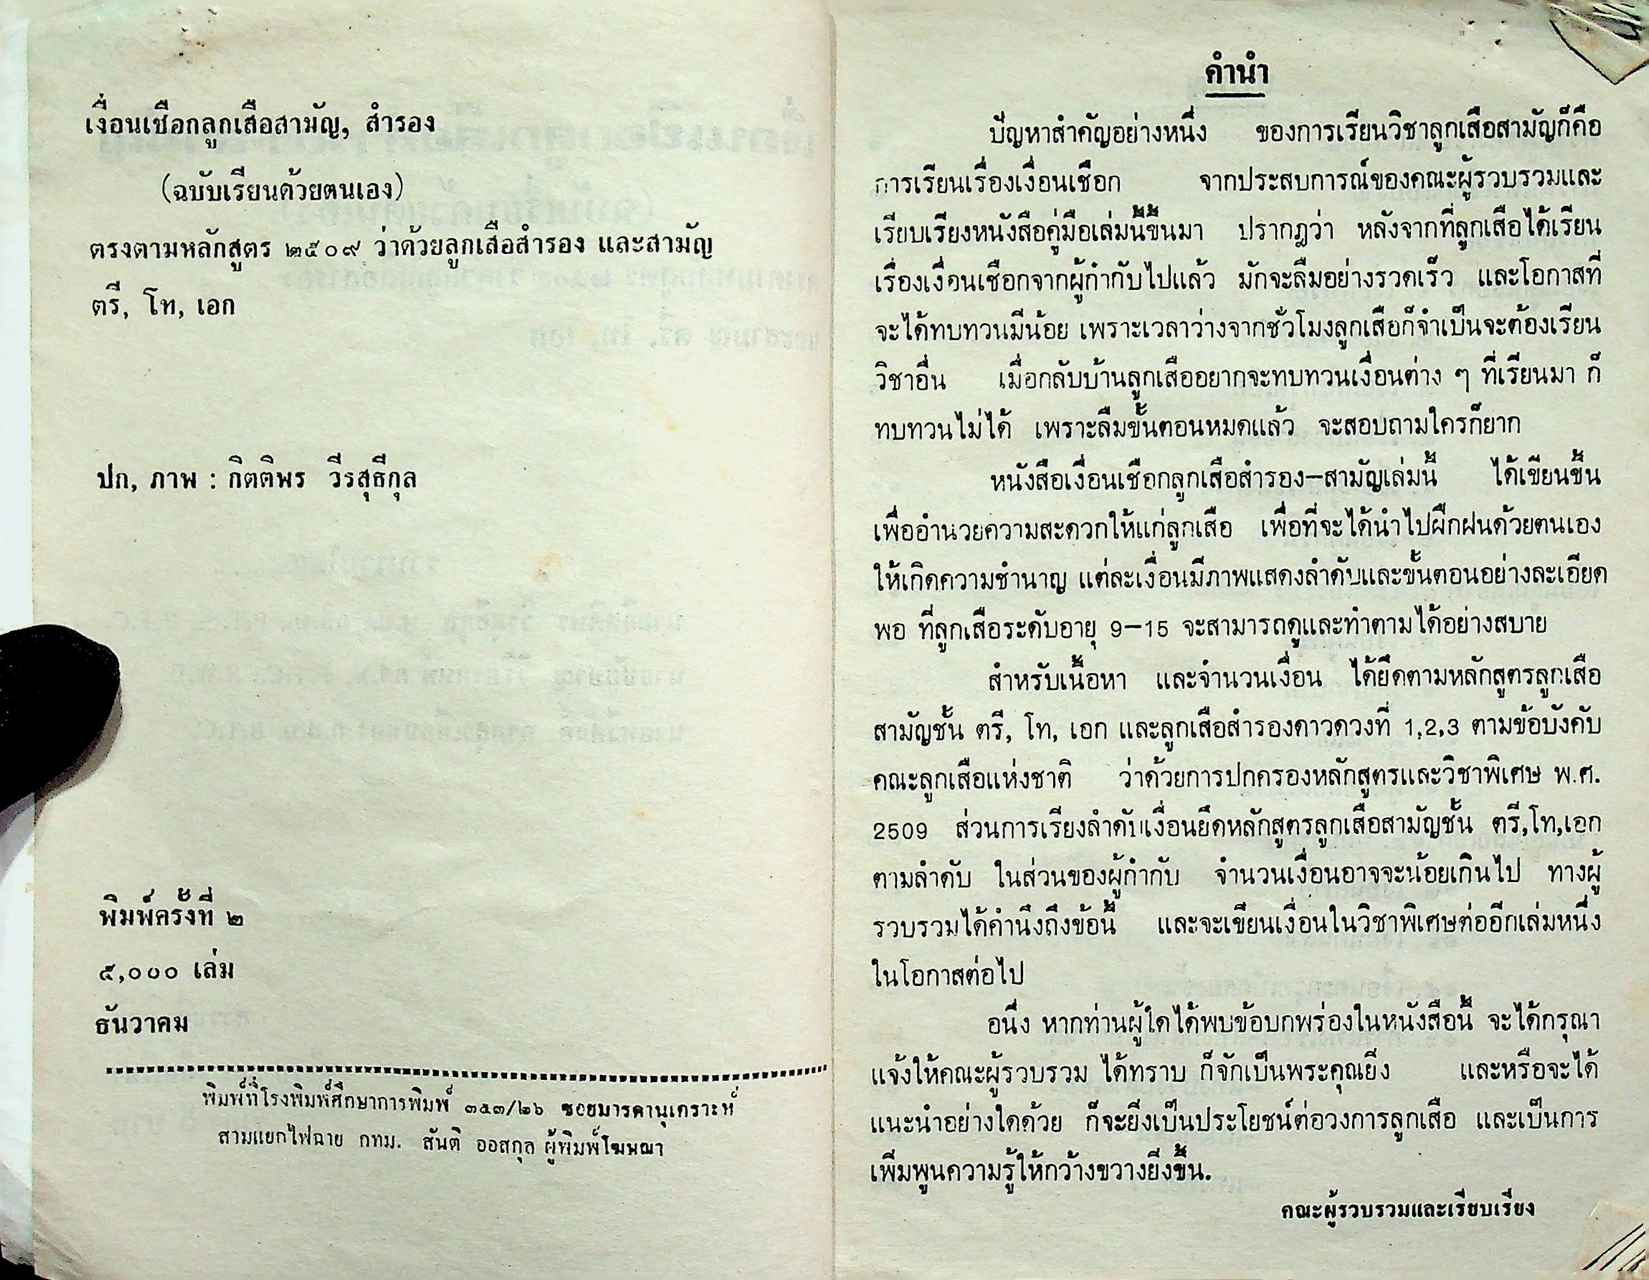 เงื่อนเชือกลูกเสือสามัญ, สำรอง
(ฉบับเรียนด้วยตนเอง)
ตรงตามหลักสูตร ๒๕๐๙ ว่าด้วยลูกเสือสำรอง และสามัญ
ตรี, โท, เอก
ปก, ภาพ : กิตติพร วีรสุธีกุล
พิมพ์ครั้งที่ ๒
๕,๐๐๐ เล่ม
ธันวาคม
พิมพ์ที่โรงพิมพ์ศึกษาการพิมพ์ ๓๕๓/๒๖ ซอยมารดานุเคราะห์
สามแยกไฟฉาย กทม. สันติ ออสกุล ผู้พิมพ์โฆษณา
คำนำ
ปัญหาสำคัญอย่างหนึ่ง ของการเรียนวิชาลูกเสือสามัญก็คือ
การเรียนเรื่องเงื่อนเชือก จากประสบการณ์ของคณะผู้รวบรวมและ
เรียบเรียงหนังสือคู่มือเล่มนี้ขึ้นมา ปรากฎว่า หลังจากที่ลูกเสือได้เรียน
เรื่องเงื่อนเชือกจากผู้กำกับไปแล้ว มักจะลืมอย่างรวดเร็ว และโอกาสที่
จะได้ทบทวนมีน้อย เพราะเวลาว่างจากชั่วโมงลูกเสือก็จำเป็นจะต้องเรียน
วิชาอื่น เมื่อกลับบ้านลูกเสืออยากจะทบทวนเงื่อนต่าง ๆ ที่เรียนมา ก็
ทบทวนไม่ได้ เพราะลืมขั้นตอนหมดแล้ว จะสอบถามใครก็ยาก
หนังสือเงื่อนเชือกลูกเสือสำรอง–สามัญเล่มนี้ ได้เขียนขึ้น
เพื่ออำนวยความสะดวกให้แก่ลูกเสือ เพื่อที่จะได้นำไปฝึกฝนด้วยตนเอง
ให้เกิดความชำนาญ แต่ละเงื่อนมีภาพแสดงลำดับและขั้นตอนอย่างละเอียด
พอ ที่ลูกเสือระดับอายุ 9–15 จะสามารถดูและทำตามได้อย่างสบาย
สำหรับเนื้อหา และจำนวนเงื่อน ได้ยึดตามหลักสูตรลูกเสือ
สามัญชั้น ตรี, โท, เอก และลูกเสือสำรองดาวดวงที่ 1,2,3 ตามข้อบังคับ
คณะลูกเสือแห่งชาติ ว่าด้วยการปกครองหลักสูตรและวิชาพิเศษ พ.ศ.
2509 ส่วนการเรียงลำดับเงื่อนยึดหลักสูตรลูกเสือสามัญชั้น ตรี,โท,เอก
ตามลำดับ ในส่วนของผู้กำกับ จำนวนเงื่อนอาจจะน้อยเกินไป ทางผู้
รวบรวมได้คำนึงถึงข้อนี้ และจะเขียนเงื่อนในวิชาพิเศษต่ออีกเล่มหนึ่ง
ในโอกาสต่อไป
อนึ่ง หากท่านผู้ใดได้พบข้อบกพร่องในหนังสือนี้ จะได้กรุณา
แจ้งให้คณะผู้รวบรวม ได้ทราบ ก็จักเป็นพระคุณยิ่ง และหรือจะได้
แนะนำอย่างใดด้วย ก็จะยิ่งเป็นประโยชน์ต่อวงการลูกเสือ และเป็นการ
เพิ่มพูนความรู้ให้กว้างขวางยิ่งขึ้น.
คณะผู้รวบรวมและเรียบเรียง